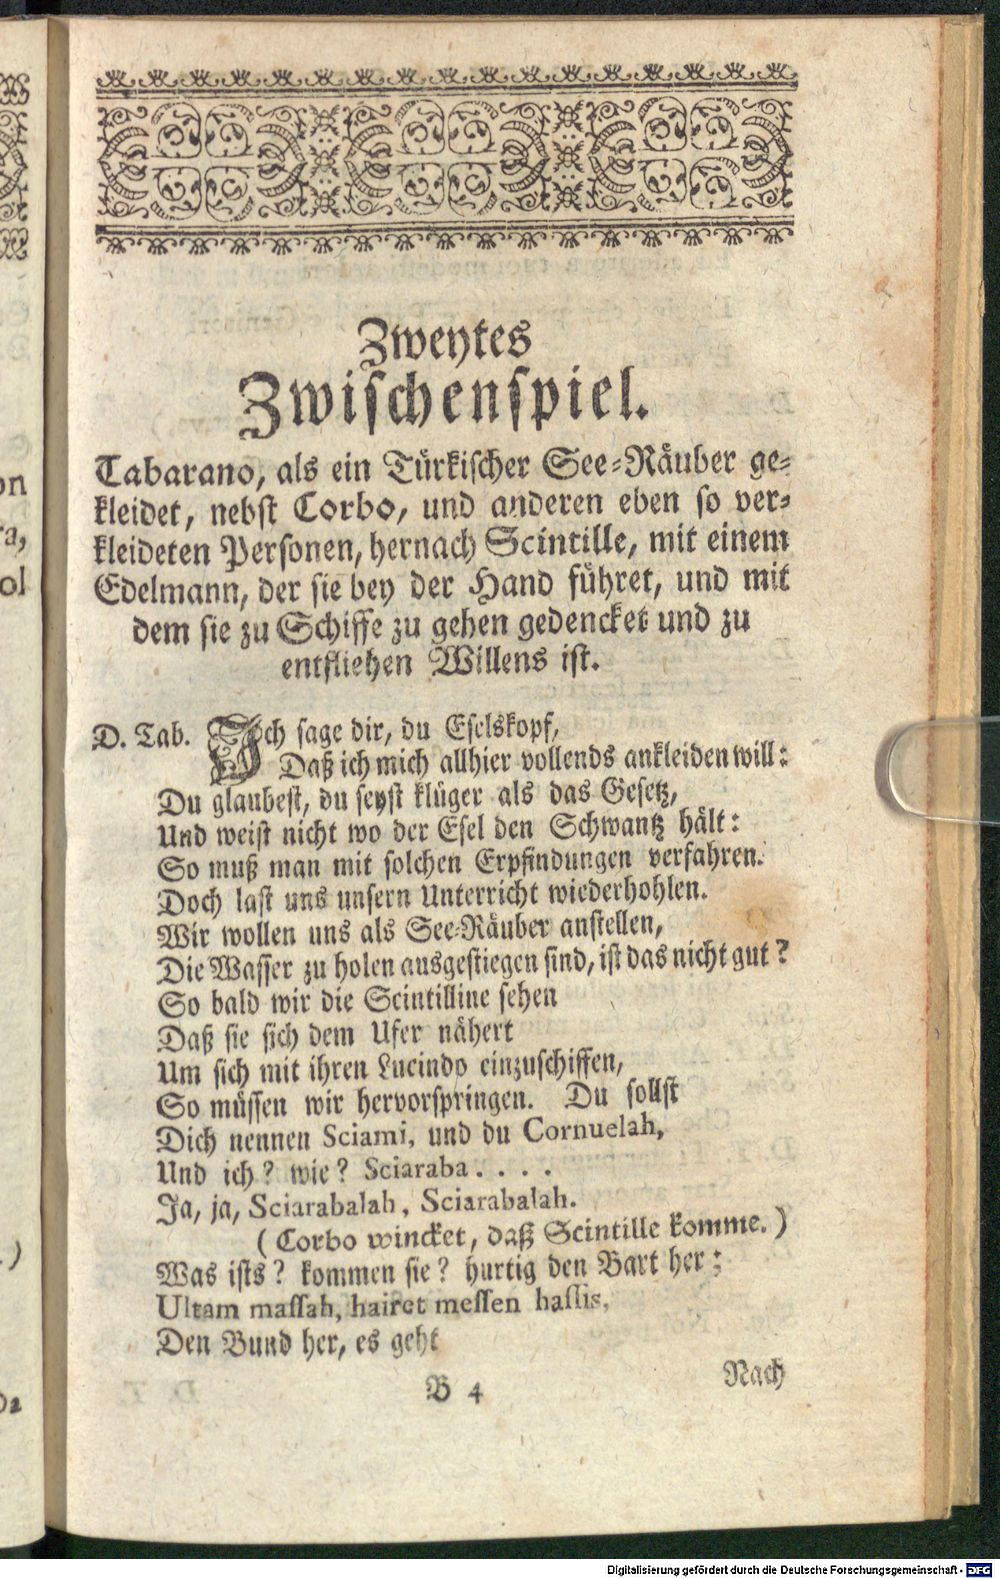 Zweytes
Zwischenspiel.
Tabarano, als ein Türkischer See-Räuber ge-
kleidet, nebst Corbo, und anderen eben so ver-
kleideten Personen, hernach Scintille, mit einem
Edelmann, der sie bey der Hand führet, und mit
dem sie zu Schiffe zu gehen gedencket und zu
entfliehen Willens ist.
D. Tab. Ich sage dir, du Eselskopf,
Daß ich mich allhier vollends ankleiden will:
Du glaubest, du seyst klüger als das Gesetz,
Und weist nicht wo der Esel den Schwantz hält:
So muß man mit solchen Erpfindungen verfahren.
Doch last uns unsern Unterricht wiederhohlen.
Wir wollen uns als See-Räuber anstellen,
Die Wasser zu holen ausgestiegen sind, ist das nicht gut?
So bald wir die Scintilline sehen
Daß sie sich dem Ufer nähert
Um sich mit ihren Lucindo einzuschiffen,
So müssen wir hervorspringen. Du sollst
Dich nennen Sciami, und du Cornuelah,
Und ich? wie? Sciaraba . . . .
Ja, ja, Sciarabalah, Sciarabalah.
(Corbo wincket, daß Scintille komme.)
Was ists? kommen sie? hurtig den Bart her:
Ultam massah, hairet messen hassis,
Den Bund her, es geht
B 4
Nach
on
ra,
ol
.)
D2
Digitalisierung gefördert durch die Deutsche Forschungsgemeinschaft - DFG